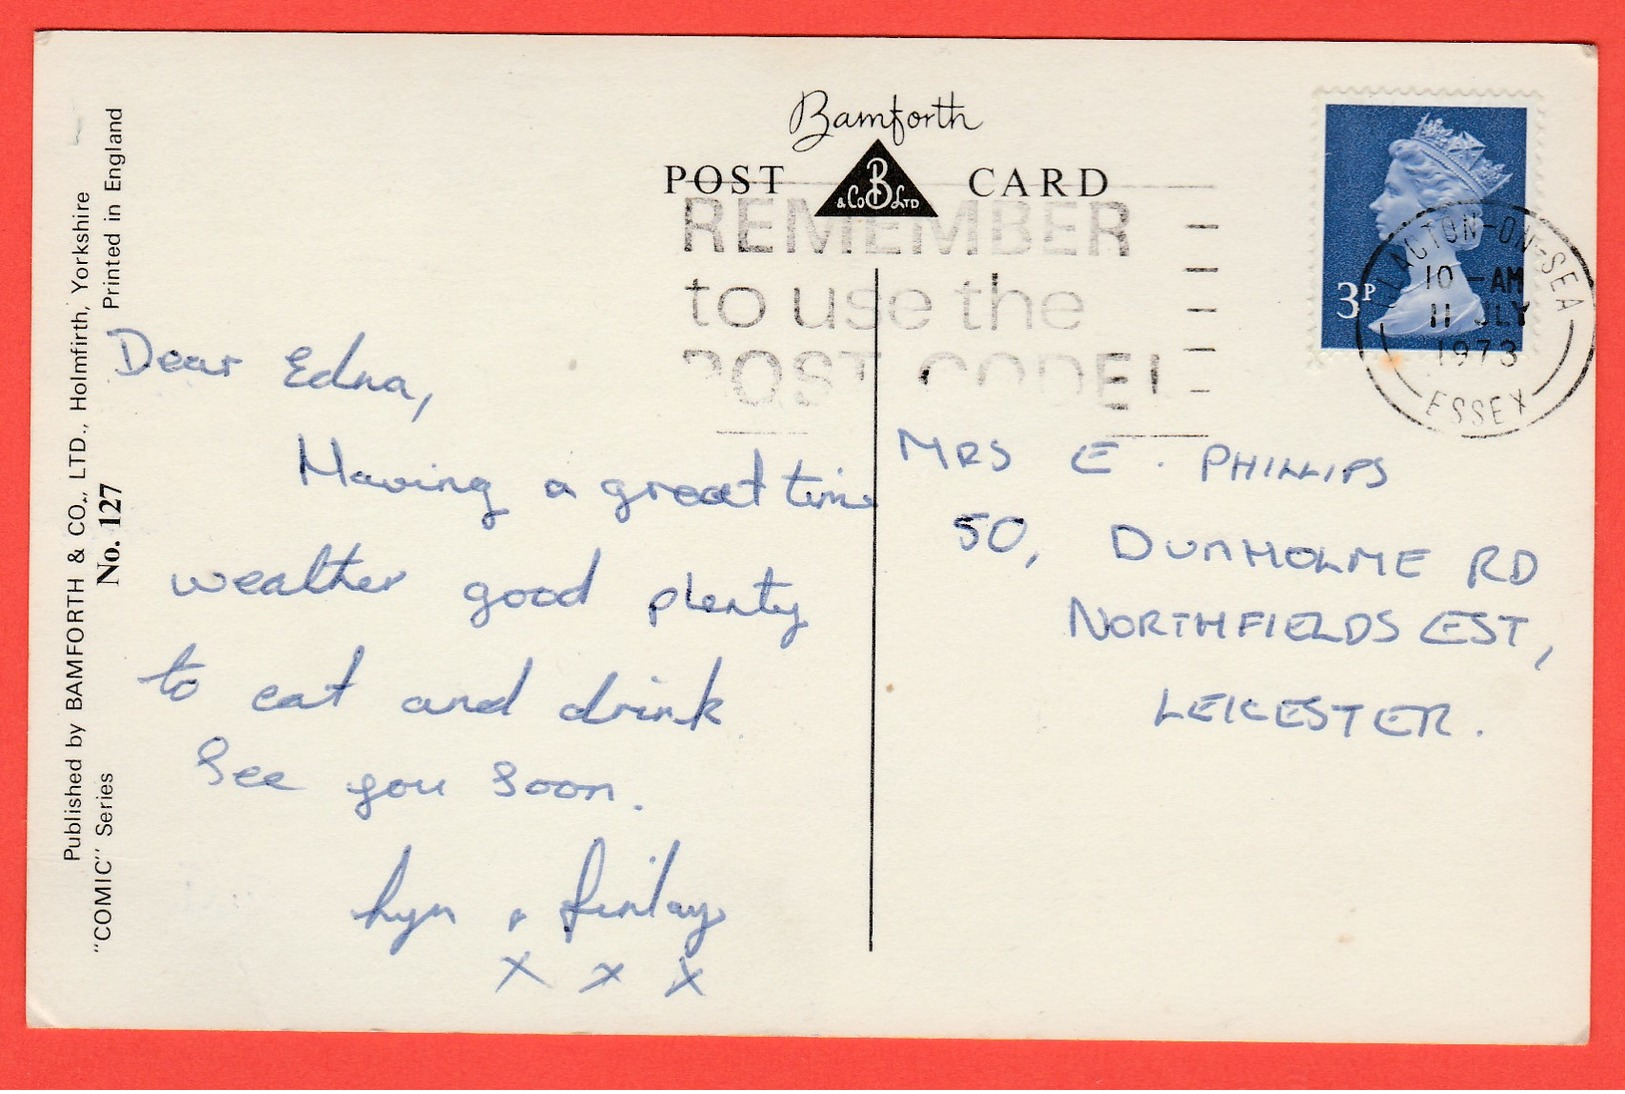 Bamforth
POST CARD
B
& Co LTD
REMEMBER
to use the
POST CODE!
3P
CLACTON-ON-SEA
10 - AM
11 JLY
1973
ESSEX
Published by BAMFORTH & CO., LTD., Holmfirth, Yorkshire
"COMIC" Series
No. 127
Printed in England
Dear Edna,
Having a great time
weather good plenty
to eat and drink
See you soon.
Lyn & Finlay
x x x
MRS E. PHILLIPS
50, DUNHOLME RD
NORTHFIELDS EST,
LEICESTER.